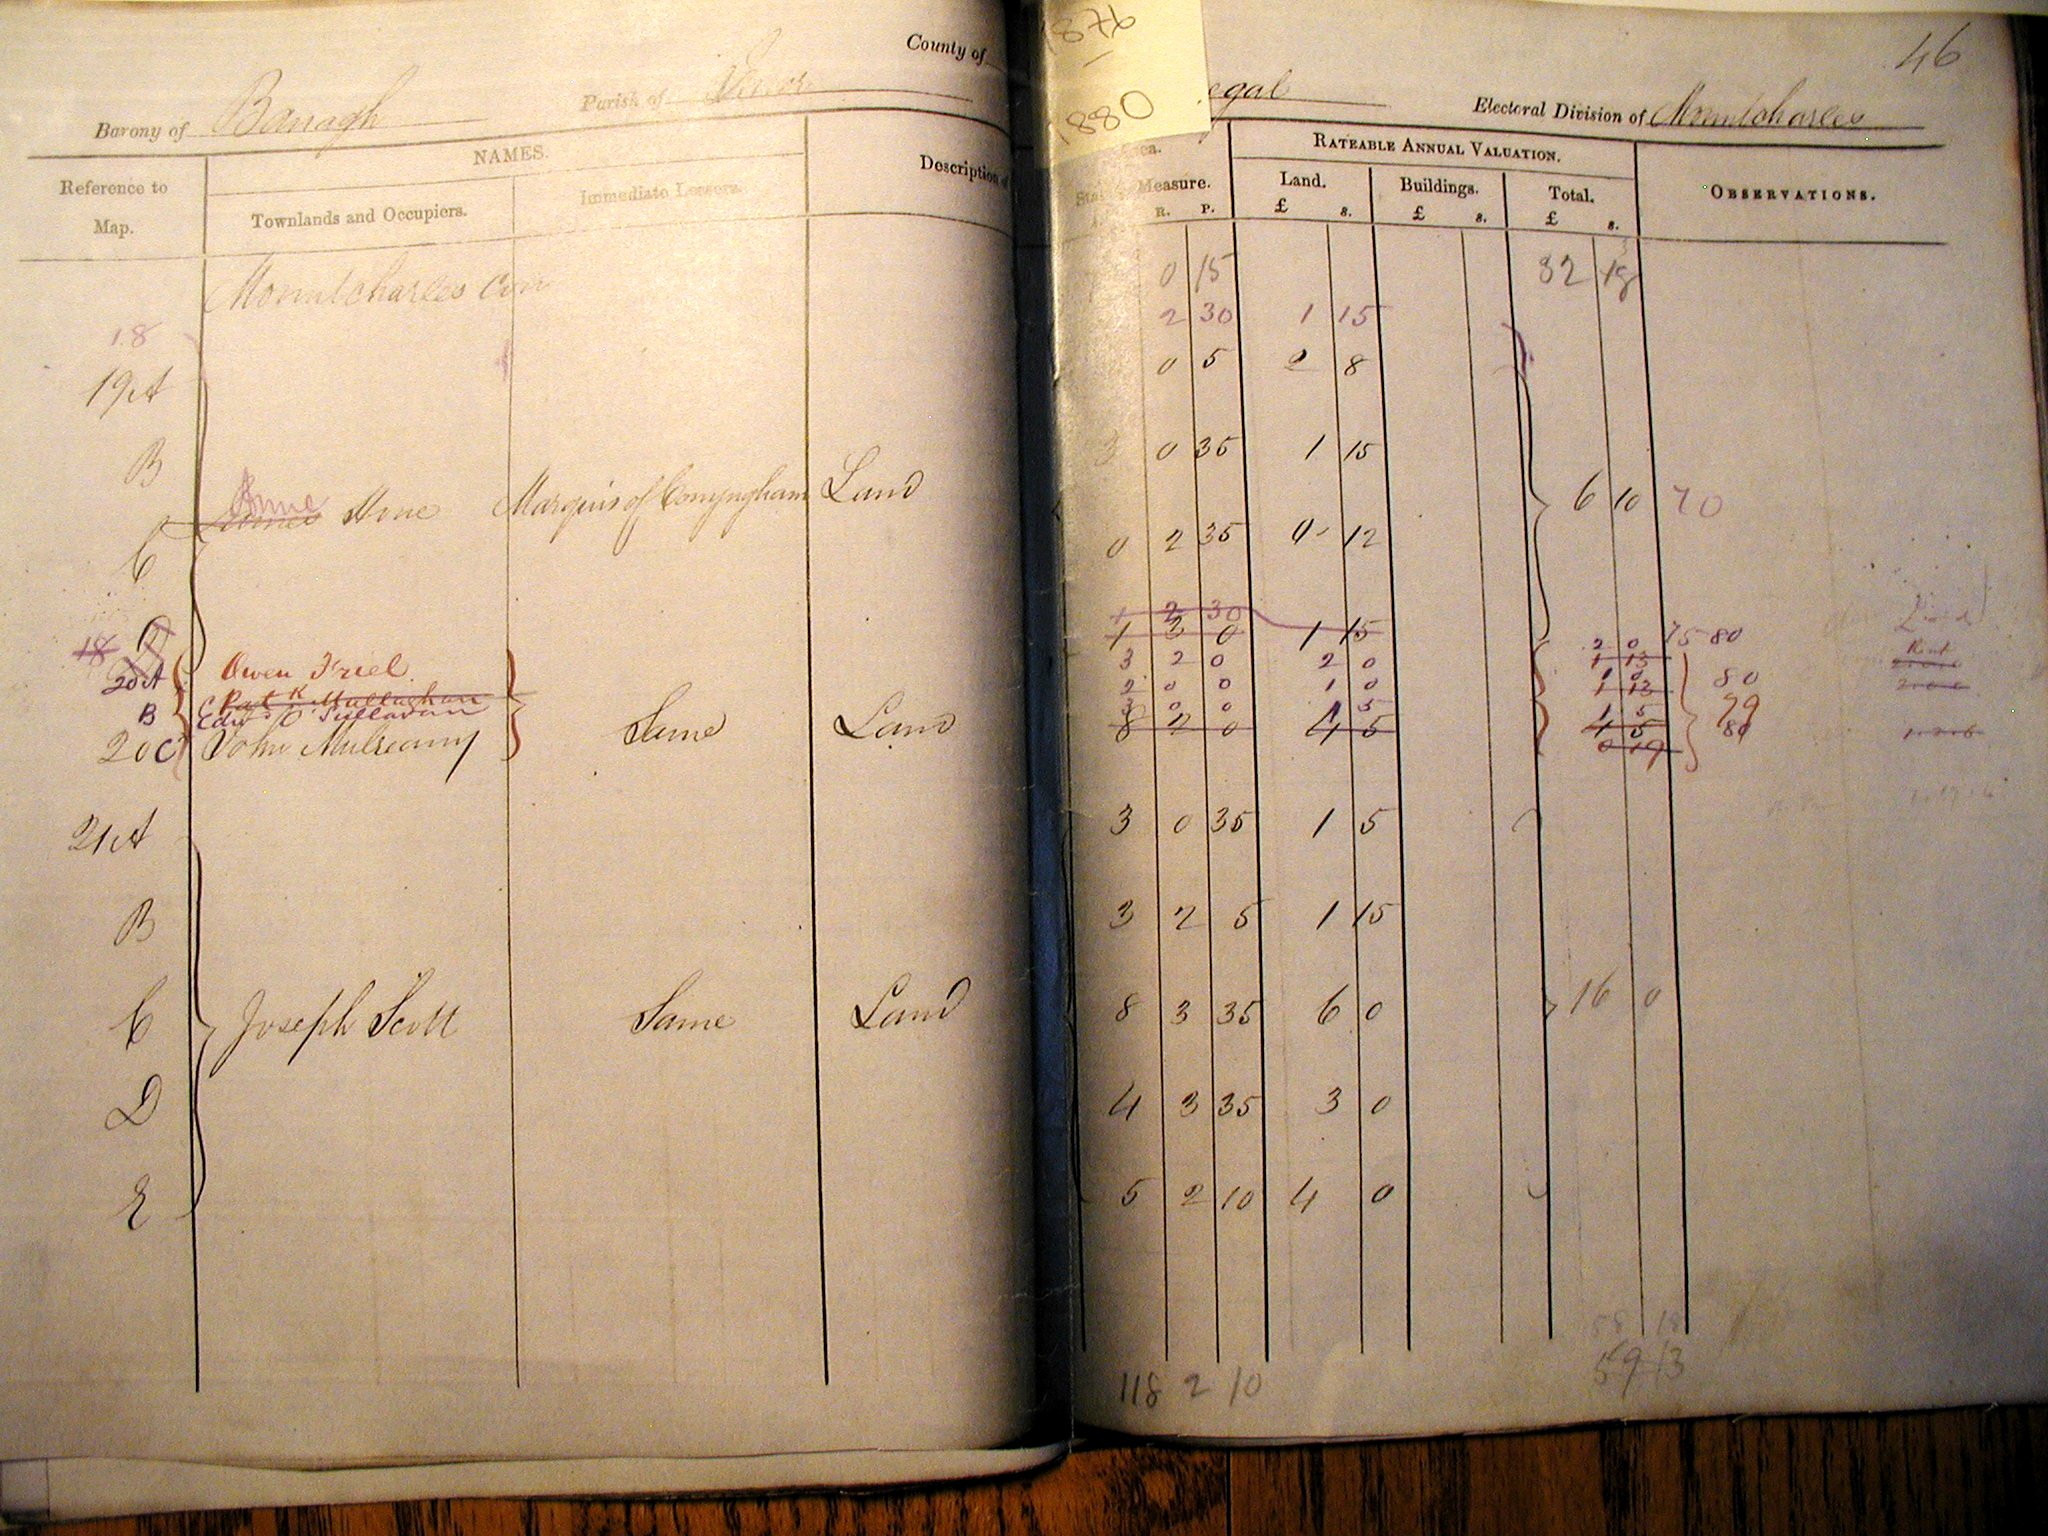 1876
1880
46
County of egal
Barony of Banagh Parish of Inver Electoral Division of Mountcharles
Reference to Map. NAMES. Description of Area. RATEABLE ANNUAL VALUATION. OBSERVATIONS.
Townlands and Occupiers. Immediate Lessors. Measure. Land. Buildings. Total.
R. P. £ s. £ s. £ s.
Mountcharles Con 0 15 32 18
18 2 30 1 15
19A 0 5 2 8
B 3 0 35 1 15
Anne
James Hone Marquis of Conyngham Land 6 10 70
C 0 2 35 0 12
D 1 2 30
1 3 0 1 15
18
20A Owen Friel 3 2 0 2 0 2 0 75 80
1 13 Rent
C Patk Mullaghan 2 0 0 1 0 1 0 80
1 12
B Edwd O'Sullavan 3 0 0 1 5 1 5 79
20C John Mulreany Same Land 8 2 0 4 5 4 5 80
0 19
21A 3 0 35 1 5
B 3 2 5 1 15
C Joseph Scott Same Land 8 3 35 6 0 16 0
D 4 3 35 3 0
E 5 2 10 4 0
58 18
118 2 10 59 13